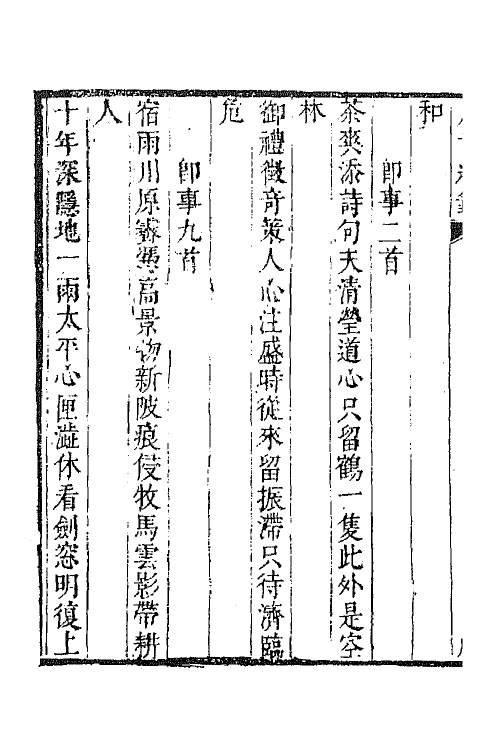 和
即事二首
茶爽添詩句天清瑩道心只留鶴一隻此外是空
林
御禮徵奇䇿人心注盛時從來留振滯只待濟臨
危
即事九首
宿雨川原霽凭高景物新陂痕侵牧馬雲影帶耕
人
十年深隱地一雨太平心匣澁休看劍窓明復上